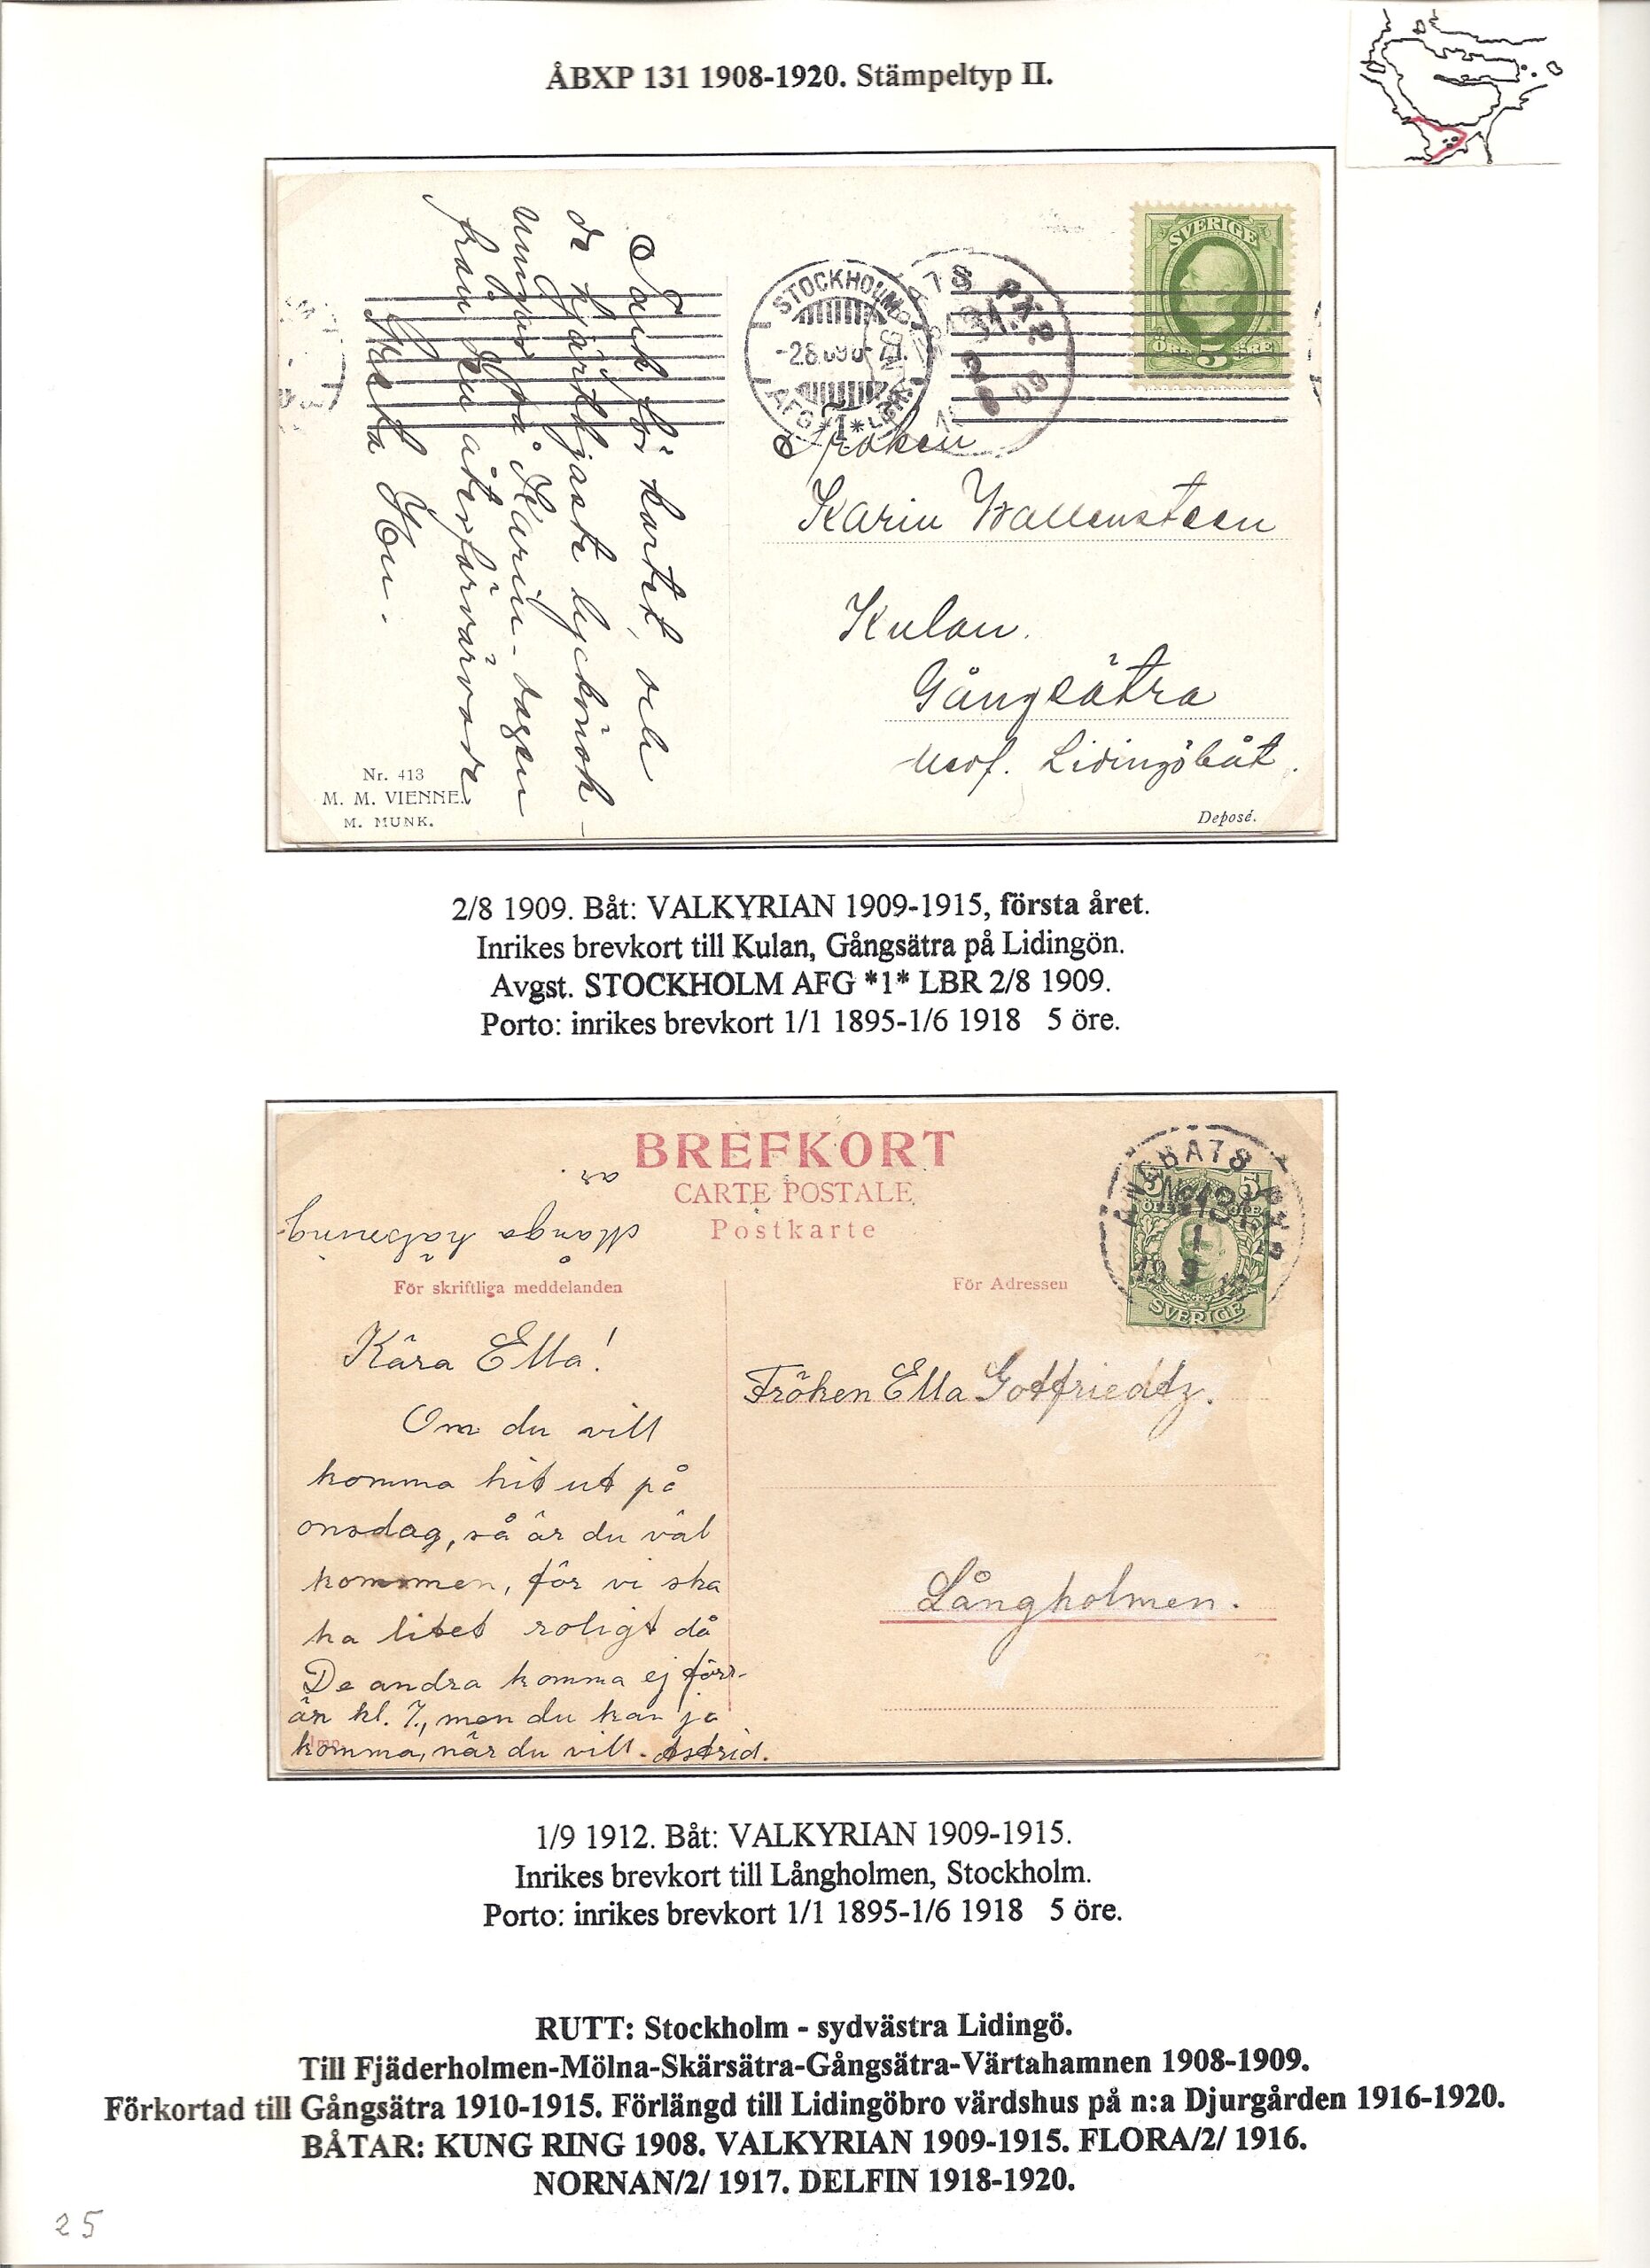 ÅBXP 131 1908-1920. Stämpeltyp II.
SVERIGE
ÖRE 5 ÖRE
STOCKHOLM
AFG *1* LBR
PXP
Tack för kortet, och
de hjärtligaste lyckönsk
ningar på Karin-dagen
från den återförvärvade
Fröken
Karin Wallensteen
Kulan.
Gångsätra
Medf. Lidingöbåt.
Nr. 413
M. M. VIENNE.
M. MUNK.
Deposé.
2/8 1909. Båt: VALKYRIAN 1909-1915, första året.
Inrikes brevkort till Kulan, Gångsätra på Lidingön.
Avgst. STOCKHOLM AFG *1* LBR 2/8 1909.
Porto: inrikes brevkort 1/1 1895-1/6 1918 5 öre.
BREFKORT
CARTE POSTALE
Postkarte
Många hälsningar.
För skriftliga meddelanden
För Adressen
ÅNGBÅTS PXP
No 131
1
9
5 5
ÖRE ÖRE
SVERIGE
Kära Ella!
Om du vill
komma hit ut på
onsdag, så är du väl
kommen, för vi ska
ha litet roligt då
De andra komma ej förr-
än kl. 7., men du kan ja
komma, när du vill. Astrid.
Imp.
Fröken Ella Gottfriedtz.
Långholmen.
1/9 1912. Båt: VALKYRIAN 1909-1915.
Inrikes brevkort till Långholmen, Stockholm.
Porto: inrikes brevkort 1/1 1895-1/6 1918 5 öre.
RUTT: Stockholm - sydvästra Lidingö.
Till Fjäderholmen-Mölna-Skärsätra-Gångsätra-Värtahamnen 1908-1909.
Förkortad till Gångsätra 1910-1915. Förlängd till Lidingöbro värdshus på n:a Djurgården 1916-1920.
BÅTAR: KUNG RING 1908. VALKYRIAN 1909-1915. FLORA/2/ 1916.
NORNAN/2/ 1917. DELFIN 1918-1920.
25